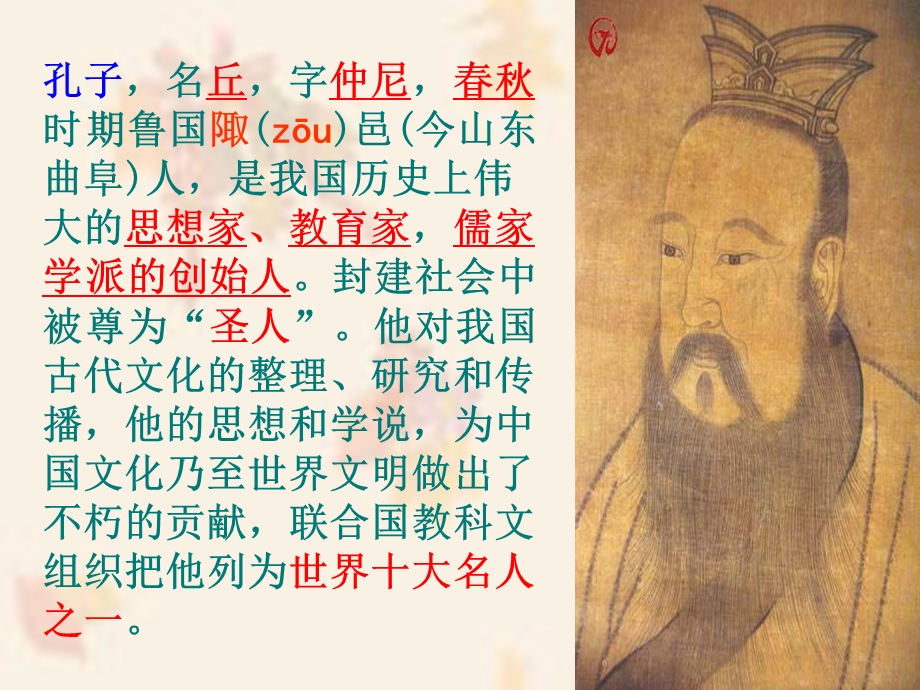 孔子，名丘，字仲尼，春秋
时期鲁国陬(zōu)邑(今山东
曲阜)人，是我国历史上伟
大的思想家、教育家，儒家
学派的创始人。封建社会中
被尊为“圣人”。他对我国
古代文化的整理、研究和传
播，他的思想和学说，为中
国文化乃至世界文明做出了
不朽的贡献，联合国教科文
组织把他列为世界十大名人
之一。